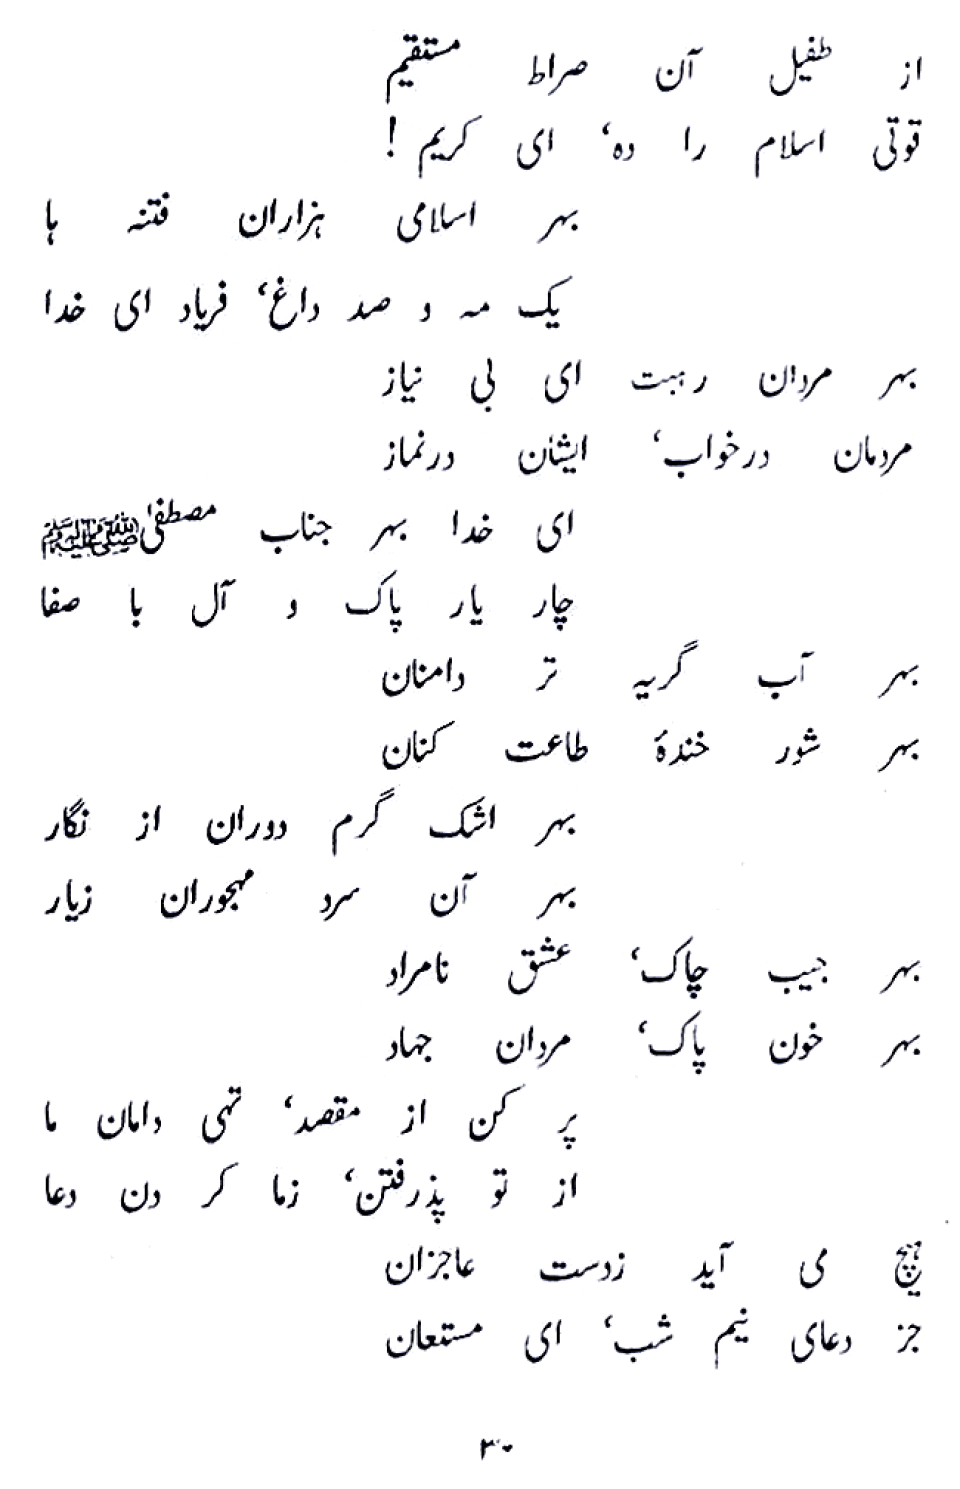 از طفیل آن صراط مستقیم
قوتی اسلام را ده‘ ای کریم !
بہر اسلامی ہزاران فتنہ ہا
یک مہ و صد داغ‘ فریاد ای خدا
بہر مردان رہت ای بی نیاز
مردمان درخواب‘ ایشان درنماز
ای خدا بہر جناب مصطفیٰ ﷺ
چار یار پاک و آل با صفا
بہر آب گریہ تر دامنان
بہر شور خندۂ طاعت کنان
بہر اشک گرم دوران از نگار
بہر آن سرد مہجوران زیار
بہر جیب چاک‘ عشق نامراد
بہر خون پاک‘ مردان جہاد
پر کن از مقصد‘ تہی دامان ما
از تو پذرفتن‘ زما کر دن دعا
ہیچ می آید زدست عاجزان
جز دعای نیم شب‘ ای مستعان
۳۰